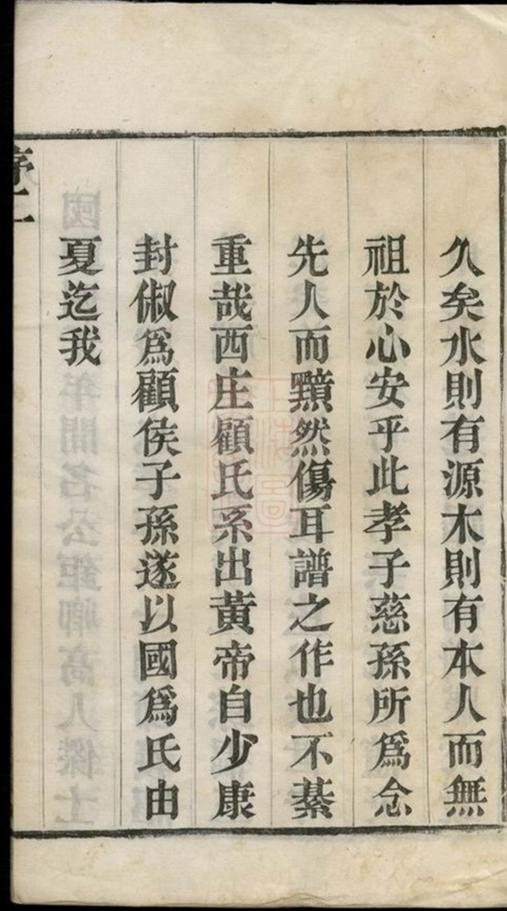 久矣水則有源木則有本人而無
祖於心安乎此孝子慈孫所為念
先人而黯然傷耳譜之作也不綦
重哉西庄顧氏系出黃帝自少康
封俶為顧侯子孫遂以國為氏由
夏迄我
序二